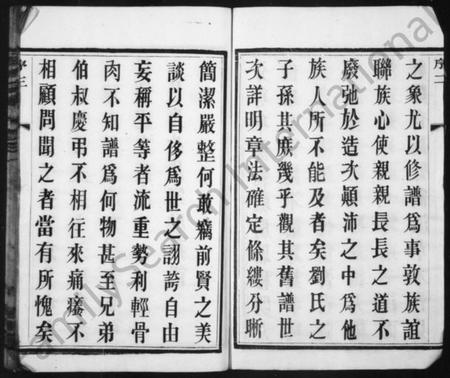 序二
之象尤以修譜爲事敦族誼
聯族心使親親長長之道不
廢弛於造次顚沛之中爲他
族人所不能及者矣劉氏之
子孫其庶幾乎觀其舊譜世
次詳明章法確定條縷分晰
簡潔嚴整何敢竊前賢之美
談以自侈爲世之誇自由
妄稱平等者流重勢利輕骨
肉不知譜爲何物甚至兄弟
伯叔慶弔不相往來痛癢不
相顧問聞之者當有所愧矣
序三
FamilySearch International